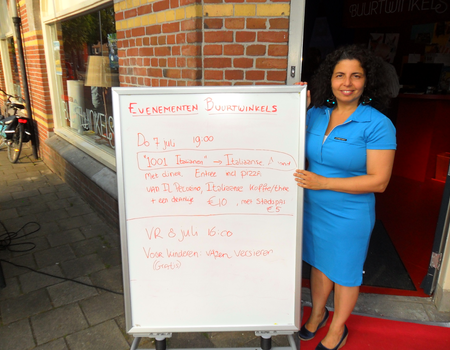 BUURTWINKELS
EVENEMENTEN BUURTWINKELS
Do 7 juli 19:00
"1001 Italianen" → Italiaanse
met diner. Entree incl pizza
van Il Pecorino, Italiaanse koffie/thee
+ een drankje €10, met Stadspas
€5
VR 8 juli 16:00
Voor kinderen: vazen versieren
(Gratis)